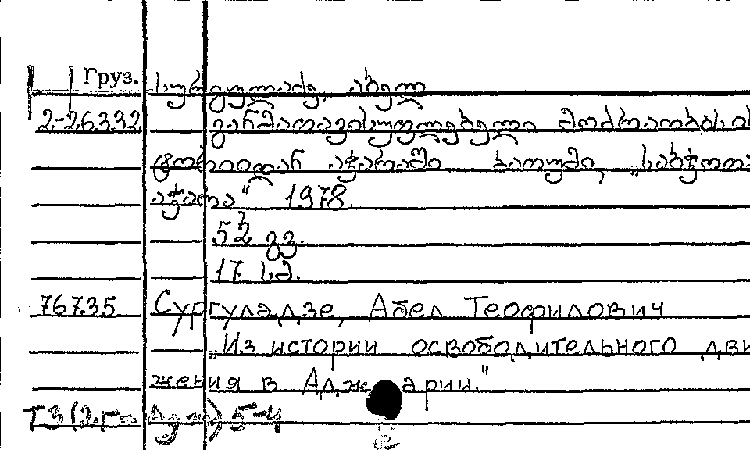 Груз. სურგულაძე, აბელ
2-26332 განმათავისუფლებელი მოძრაობის ის
ტორიიდან აჭარაში. ბათუმი, „საბჭოთა
აჭარა“ 1978.
52 გვ.
17 სმ.
76735 Сургуладзе, Абел Теофилович
„Из истории освободительного дви
жения в Аджарии."